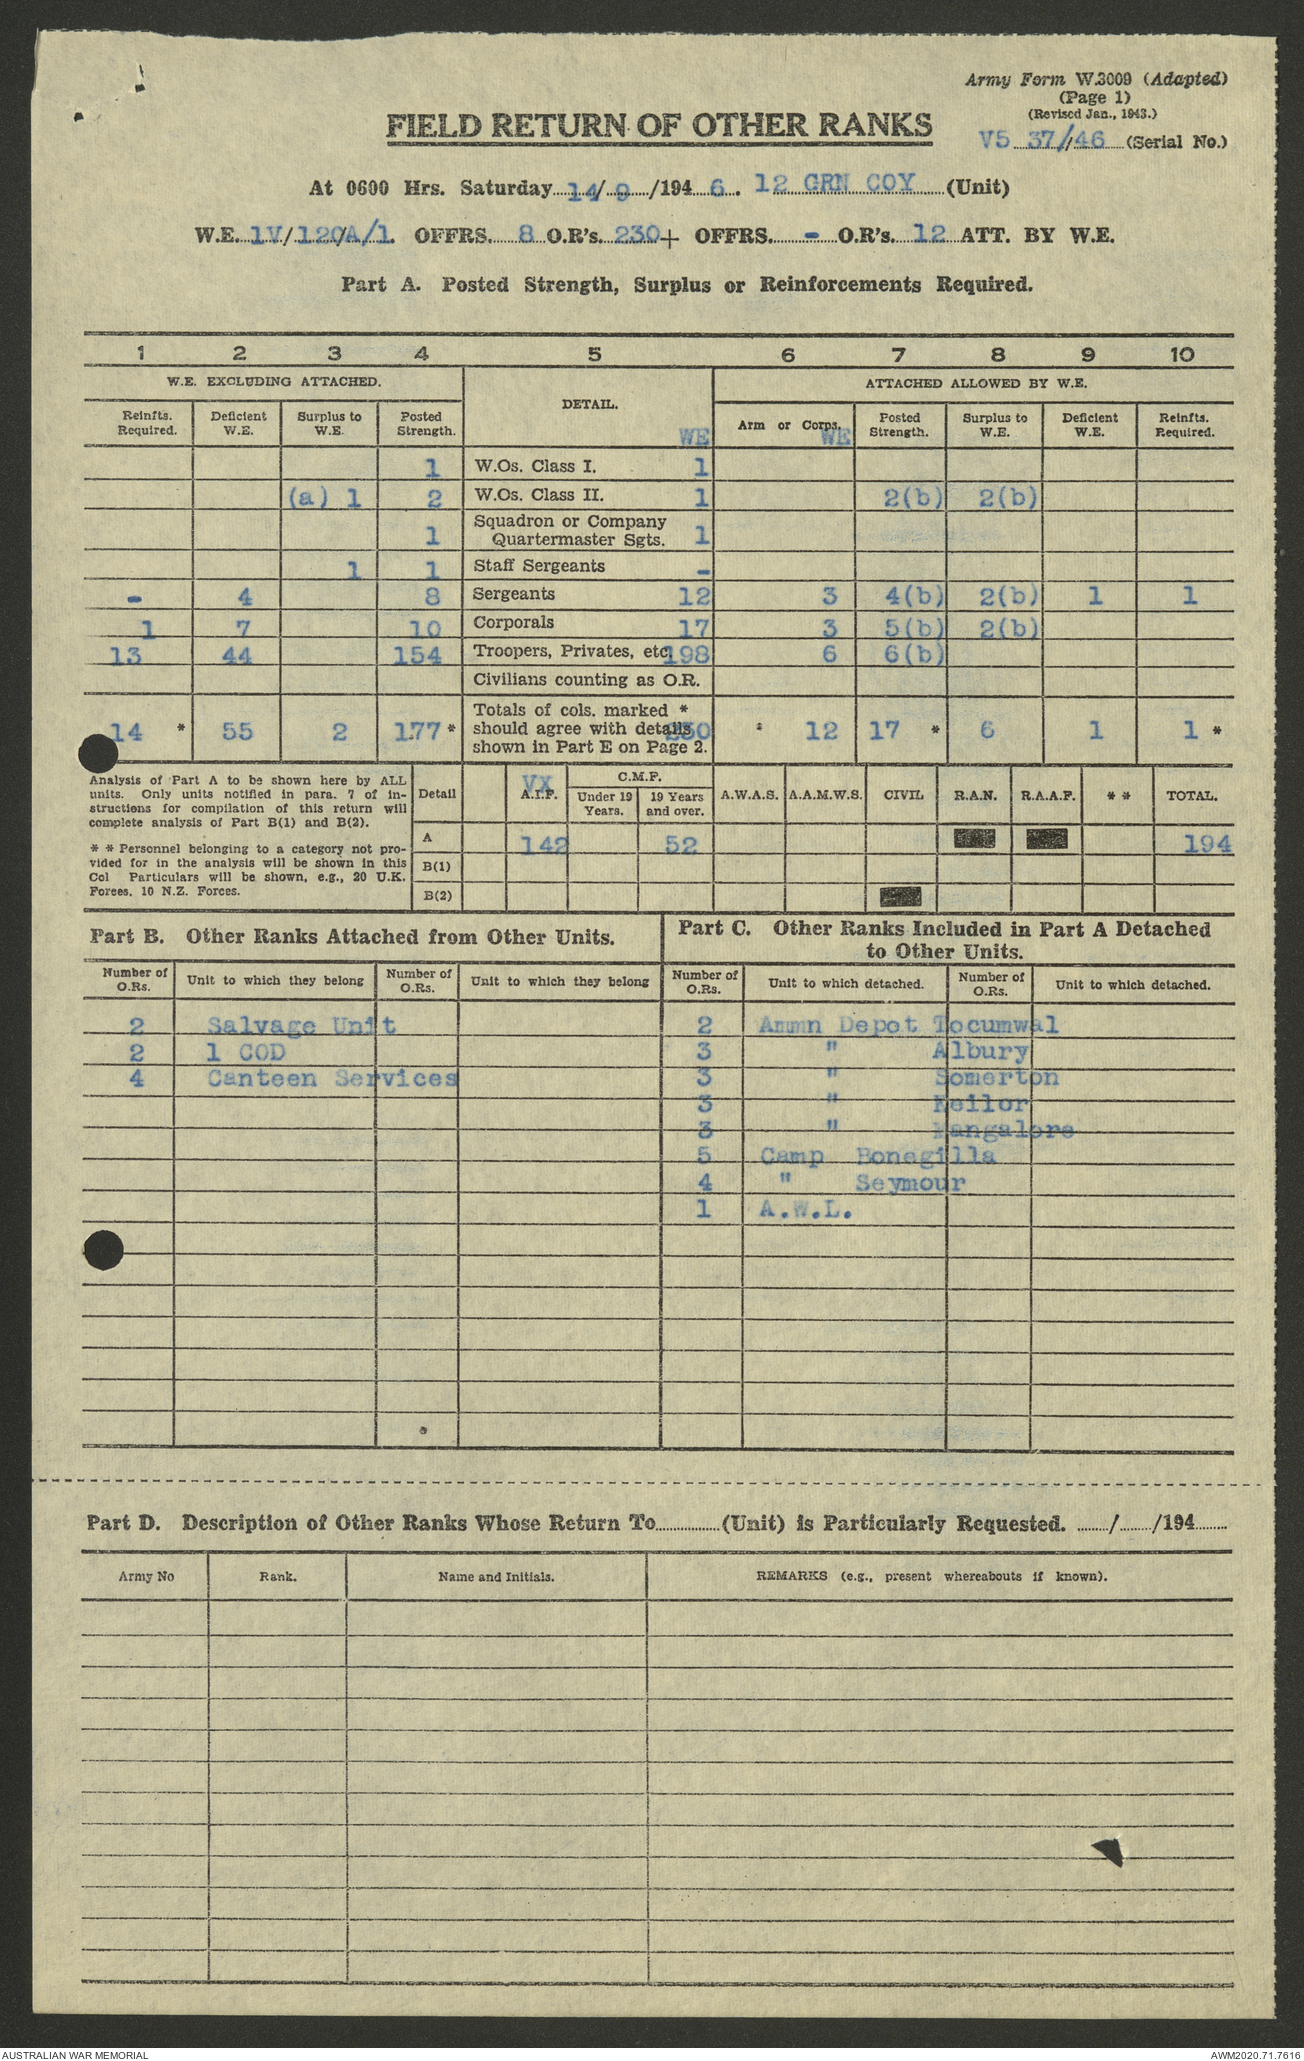 Army Form W.3009 (Adapted)
(Page 1)
(Revised Jan., 1943.)
FIELD RETURN OF OTHER RANKS
V5 37/46 (Serial No.)
At 0600 Hrs. Saturday 14/9/194 6. 12 GRN COY (Unit)
W.E. 1V/120/A/1. OFFRS. 8 O.R's. 230+ OFFRS. - O.R's. 12 ATT. BY W.E.
Part A. Posted Strength, Surplus or Reinforcements Required.
1 2 3 4 5 6 7 8 9 10
W.E. EXCLUDING ATTACHED. DETAIL. ATTACHED ALLOWED BY W.E.
Reinfts. Required. Deficient W.E. Surplus to W.E. Posted Strength. WE Arm or Corps. WE Posted Strength. Surplus to W.E. Deficient W.E. Reinfts. Required.
1 W.Os. Class I. 1
(a) 1 2 W.Os. Class II. 1 2(b) 2(b)
1 Squadron or Company Quartermaster Sgts. 1
1 1 Staff Sergeants -
- 4 8 Sergeants 12 3 4(b) 2(b) 1 1
1 7 10 Corporals 17 3 5(b) 2(b)
13 44 154 Troopers, Privates, etc. 198 6 6(b)
Civilians counting as O.R.
14 * 55 2 177 * Totals of cols. marked * should agree with details shown in Part E on Page 2. 230 * 12 17 * 6 1 1 *
Analysis of Part A to be shown here by ALL
units. Only units notified in para. 7 of in-
structions for compilation of this return will
complete analysis of Part B(1) and B(2).
* * Personnel belonging to a category not pro-
vided for in the analysis will be shown in this
Col Particulars will be shown, e.g., 20 U.K.
Forces, 10 N.Z. Forces.
Detail VX A.I.F. C.M.F. Under 19 Years. 19 Years and over. A.W.A.S. A.A.M.W.S. CIVIL R.A.N. R.A.A.F. * * TOTAL.
A 142 52 194
B(1)
B(2)
Part B. Other Ranks Attached from Other Units.
Number of O.Rs. Unit to which they belong Number of O.Rs. Unit to which they belong
2 Salvage Unit
2 1 COD
4 Canteen Services
Part C. Other Ranks Included in Part A Detached
to Other Units.
Number of O.Rs. Unit to which detached. Number of O.Rs. Unit to which detached.
2 Ammn Depot Tocumwal
3 " Albury
3 " Somerton
3 " Keilor
3 " Mangalore
5 Camp Bonegilla
4 " Seymour
1 A.W.L.
Part D. Description of Other Ranks Whose Return To (Unit) is Particularly Requested. / /194
Army No Rank. Name and Initials. REMARKS (e.g., present whereabouts if known).
AUSTRALIAN WAR MEMORIAL AWM2020.71.7616